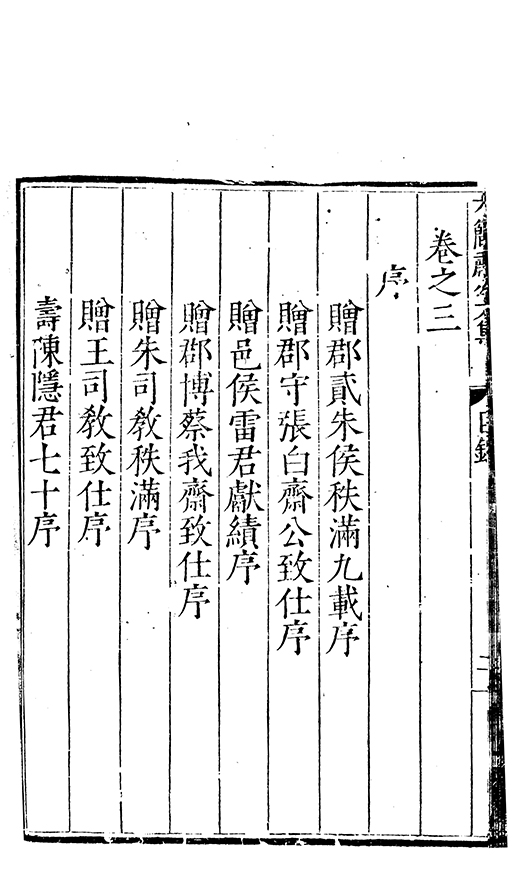 卷之三
序
贈郡貳朱侯秩滿九載序
贈郡守張白齋公致仕序
贈邑侯雷君獻績序
贈郡博蔡我齋致仕序
贈朱司教秩滿序
贈王司教致仕序
壽陳隱君七十序
目錄